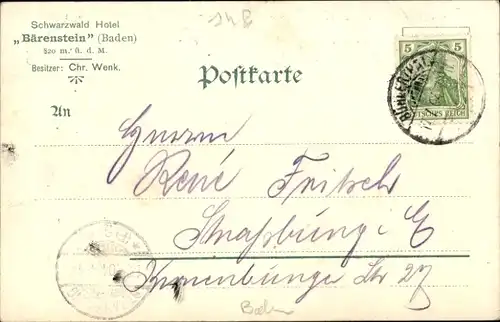 Schwarzwald Hotel
„Bärenstein" (Baden)
820 m. ü. d. M.
Besitzer: Chr. Wenk.
Postkarte
5 5
DEUTSCHES REICH
An
Herrn
René Fritsch
Straßburg i E
Str 27
Baden